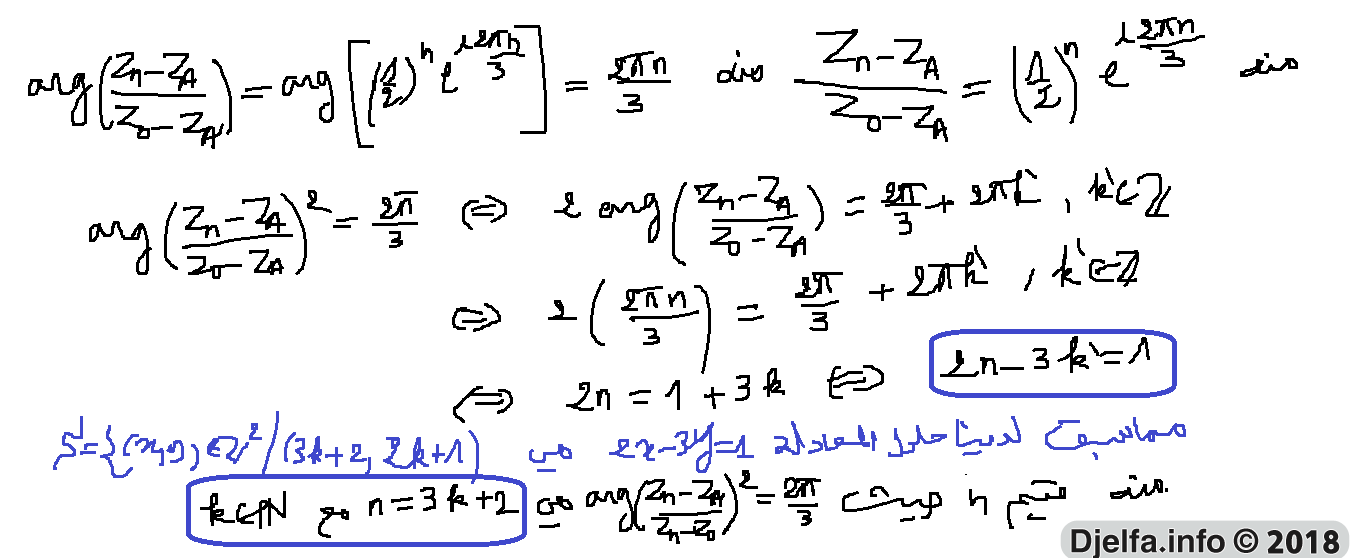 منه $\frac{Z_n - Z_A}{Z_0 - Z_A} = \left(\frac{1}{2}\right)^n e^{i\frac{2\pi n}{3}}$ منه $\arg\left(\frac{Z_n - Z_A}{Z_0 - Z_A}\right) = \arg\left[\left(\frac{1}{2}\right)^n e^{i\frac{2\pi n}{3}}\right] = \frac{2\pi n}{3}$
$\arg\left(\frac{Z_n - Z_A}{Z_0 - Z_A}\right)^2 = \frac{2\pi}{3} \Leftrightarrow 2\arg\left(\frac{Z_n - Z_A}{Z_0 - Z_A}\right) = \frac{2\pi}{3} + 2\pi k', k' \in \mathbb{Z}$
$\Leftrightarrow 2\left(\frac{2\pi n}{3}\right) = \frac{2\pi}{3} + 2\pi k', k' \in \mathbb{Z}$
$\Leftrightarrow 2n = 1 + 3k \Leftrightarrow 2n - 3k' = 1$
مماسبق لدينا حلول المعادلة $2x - 3y = 1$ هي $S = \{(x, y) \in \mathbb{Z}^2 / (3k+2, 2k+1)$
منه قيم n حيث $\arg\left(\frac{Z_n - Z_A}{Z_n - Z_0}\right)^2 = \frac{2\pi}{3}$ هي $n = 3k+2$ مع $k \in \mathbb{N}$
Djelfa.info © 2018